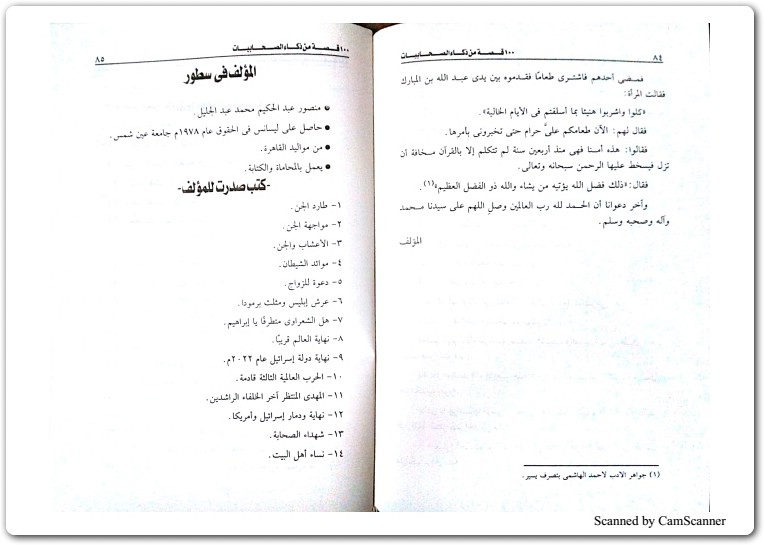 ٨٤
١٠٠ قصة من ذكاء الصحابيات
فمضى أحدهم فاشترى طعامًا فقدموه بين يدى عبد الله بن المبارك
فقالت المرأة:
«كلوا واشربوا هنيئا بما أسلفتم فى الأيام الخالية».
فقال لهم: الآن طعامكم علىَّ حرام حتى تخبرونى بأمرها.
فقالوا: هذه أمنا فهى منذ أربعين سنة لم تتكلم إلا بالقرآن مخافة أن
تزل فيسخط عليها الرحمن سبحانه وتعالى.
فقال: «ذلك فضل الله يؤتيه من يشاء والله ذو الفضل العظيم»(١).
وآخر دعوانا أن الحمد لله رب العالمين وصل اللهم على سيدنا محمد
وآله وصحبه وسلم.
المؤلف
(١) جواهر الأدب لأحمد الهاشمى بتصرف يسير.
١٠٠ قصة من ذكاء الصحابيات
٨٥
المؤلف فى سطور
● منصور عبد الحكيم محمد عبد الجليل.
● حاصل على ليسانس فى الحقوق عام ١٩٧٨م جامعة عين شمس.
● من مواليد القاهرة.
● يعمل بالمحاماة والكتابة.
-كتب صدرت للمؤلف-
١- طارد الجن.
٢- مواجهة الجن.
٣- الأعشاب والجن.
٤- موائد الشيطان.
٥- دعوة للزواج.
٦- عرش إبليس ومثلث برمودا.
٧- هل الشعراوى متطرفًا يا إبراهيم.
٨- نهاية العالم قريبًا.
٩- نهاية دولة إسرائيل عام ٢٠٢٢م.
١٠- الحرب العالمية الثالثة قادمة.
١١- المهدى المنتظر آخر الخلفاء الراشدين.
١٢- نهاية ودمار إسرائيل وأمريكا.
١٣- شهداء الصحابة.
١٤- نساء أهل البيت.
Scanned by CamScanner